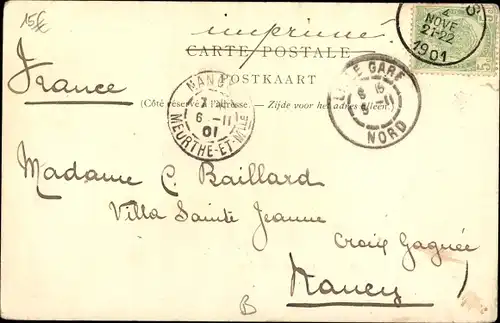 15€
imprimé
CARTE POSTALE
POSTKAART
(Côté réservé à l'adresse. — Zijde voor het adres alleen.)
4
NOVE
21-22
1901
France
NANCY
7
6 -11
01
MEURTHE-ET-MLLE
LE GARE
6 -11
NORD
Madame C. Baillard
Villa Sainte Jeanne
Croix Gagnée
Nancy
B